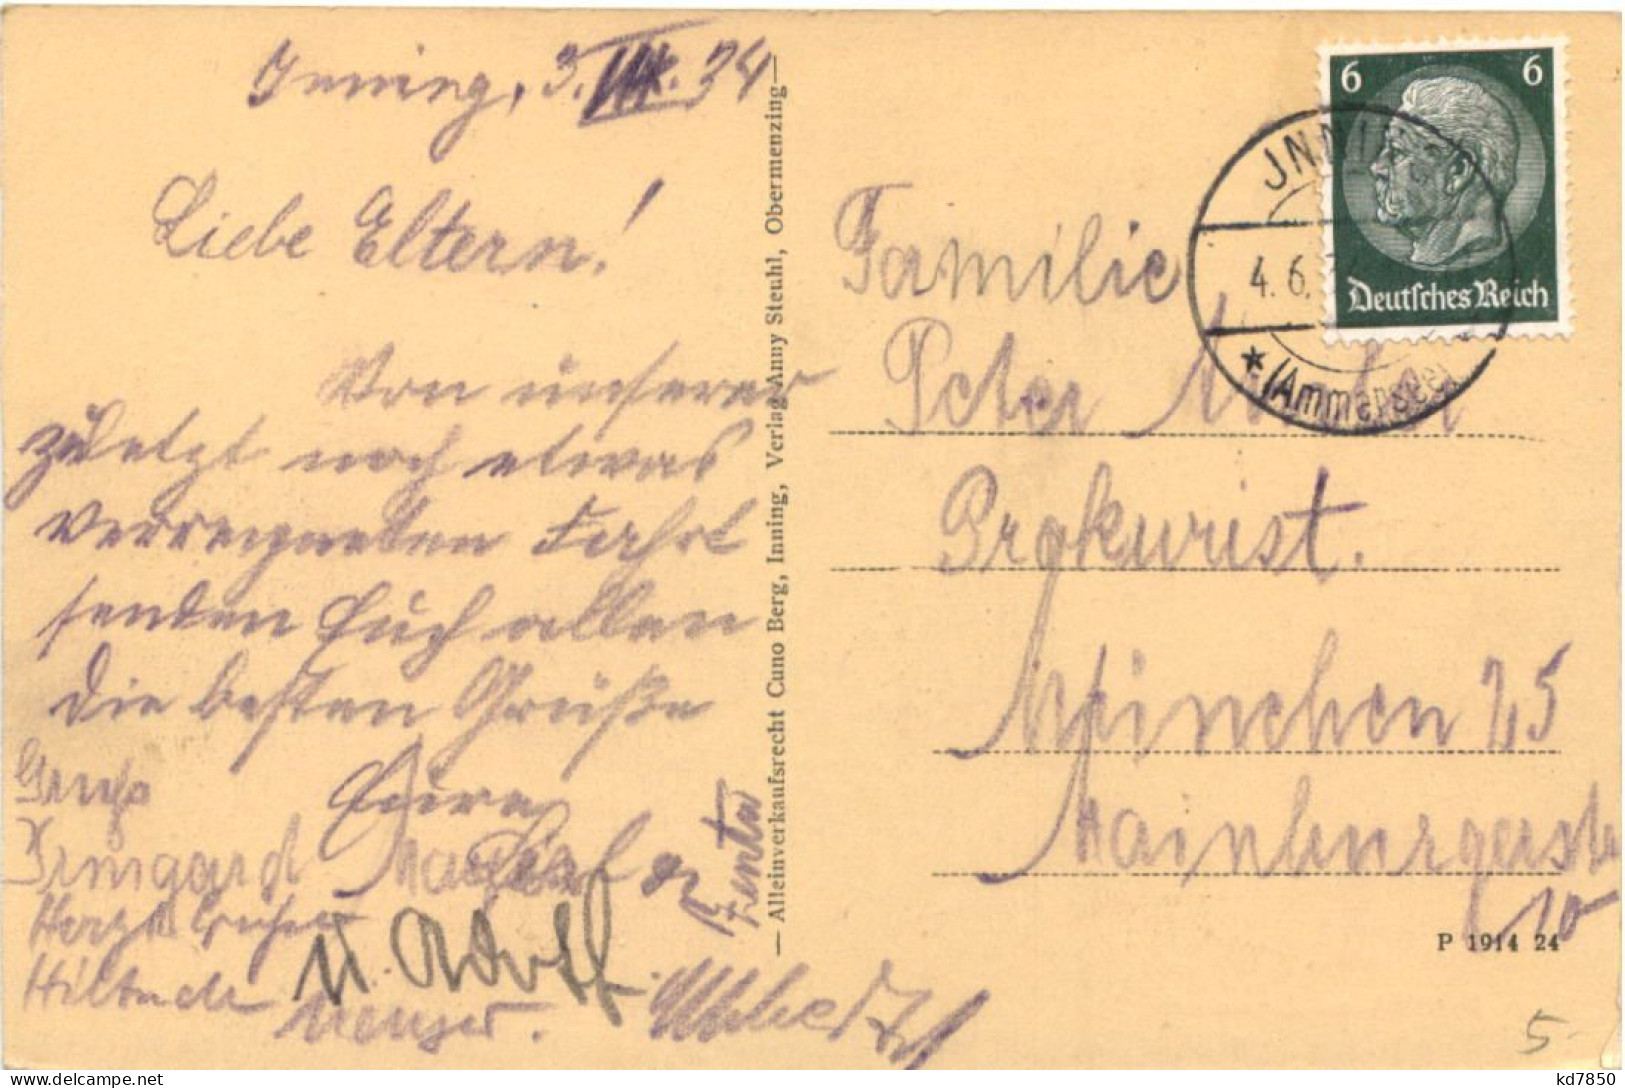 Inning, 3. VI. 34
Liebe Eltern!
Von unserer
zuletzt noch etwas
verregneten Fahrt
senden Euch allen
die besten Grüße
Eure
Gruß
Irmgard
Herzl. Grüße
Hiltrude
u. Adolf
Zenta
— Alleinverkaufsrecht Cuno Berg, Inning, Verlag Anny Steuhl, Obermenzing —
6 6
Deutsches Reich
JNNING
4. 6.
(Ammersee)
Familie
Peter
Prokurist.
München 25
Mainburgerstr
10
P 1914 24
5-
kd7850